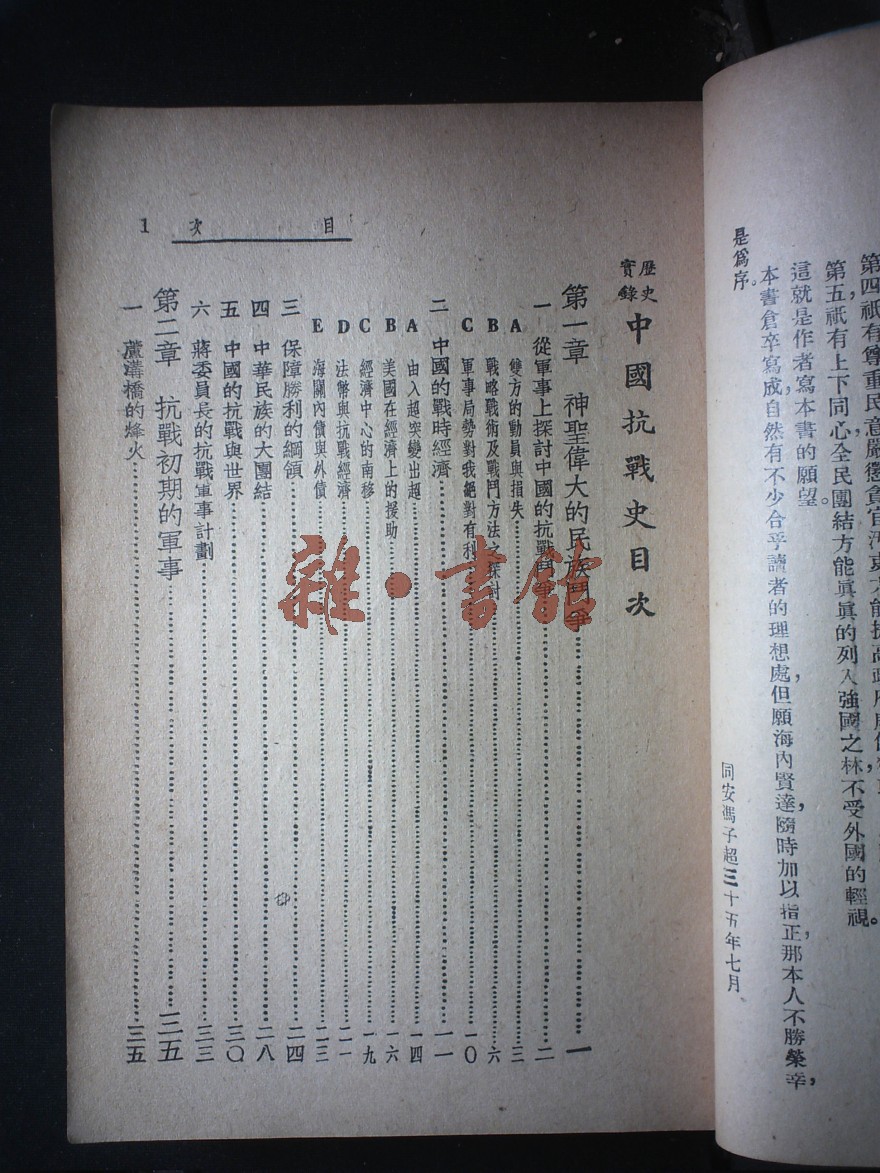 第四祇有尊重民意嚴懲貪官污吏才能提高政府
第五，祇有上下同心全民團結方能眞眞的列入強國之林不受外國的輕視。
這就是作者寫本書的願望。
本書倉卒寫成，自然有不少合乎讀者的理想處，但願海內賢達，隨時加以指正，那本人不勝榮幸，
是爲序。
同安馮子超三十五年七月
目次 1
歷史實錄 中國抗戰史目次
第一章 神聖偉大的民族鬥爭……一
一 從軍事上探討中國的抗戰鬥爭……二
A 雙方的動員與損失……三
B 戰略戰術及戰鬥方法之探討……六
C 軍事局勢對我絕對有利……一〇
二 中國的戰時經濟……一一
A 由入超突變出超……一四
B 美國在經濟上的援助……一六
C 經濟中心的南移……一九
D 法幣與抗戰經濟……二一
E 海關內債與外債……二三
三 保障勝利的綱領……二四
四 中華民族的大團結……二八
五 中國的抗戰與世界……三〇
六 蔣委員長的抗戰軍事計劃……三三
第二章 抗戰初期的軍事……三五
一 蘆溝橋的烽火……三五
雜·書館